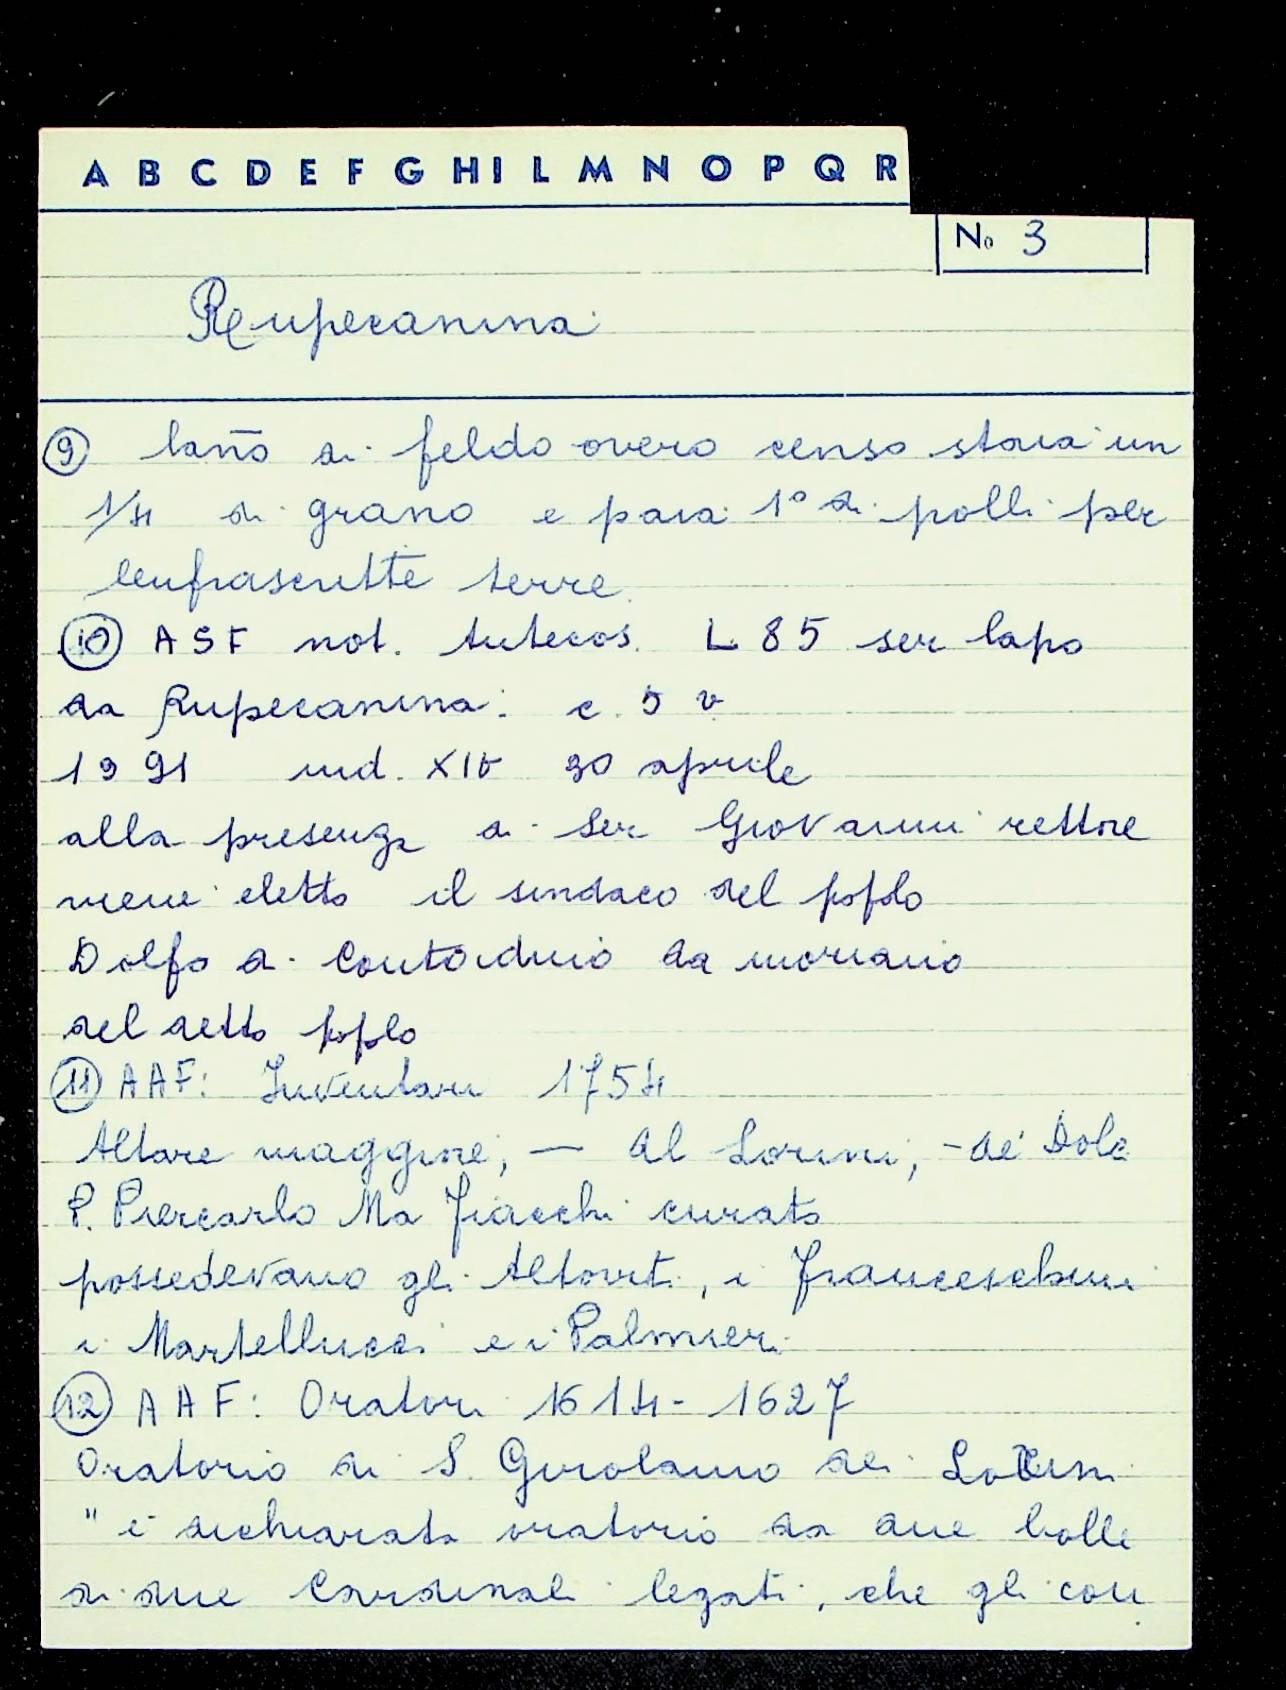 A B C D E F G H I L M N O P Q R
No 3
Rupecanina
9 lanō di feldo overo censo staia un
1/4 di grano e paia 1º di polli per
lenfrascritte terre.
10 ASF not. antecos. L 85 ser lapo
da Rupecanina: c. 5 v
1391 ind. XIV 30 aprile
alla presenza di Ser Giovanni rettore
viene eletto il sindaco del popolo
Dolfo di da moriano
del detto popolo
11 AAF: Inventari 1754
Altare maggiore, — del Lorini, - de' Dola
P. Piercarlo Ma Fiacchi curato
possedevano gli Altoviti, i Franceschini
i Martellucci e i Palmieri
12 AAF: Oratori 1614 - 1627
Oratorio di S. Girolamo dei Lorini
" è dichiarato oratorio da due bolle
di due Cardinali legati, che gli con